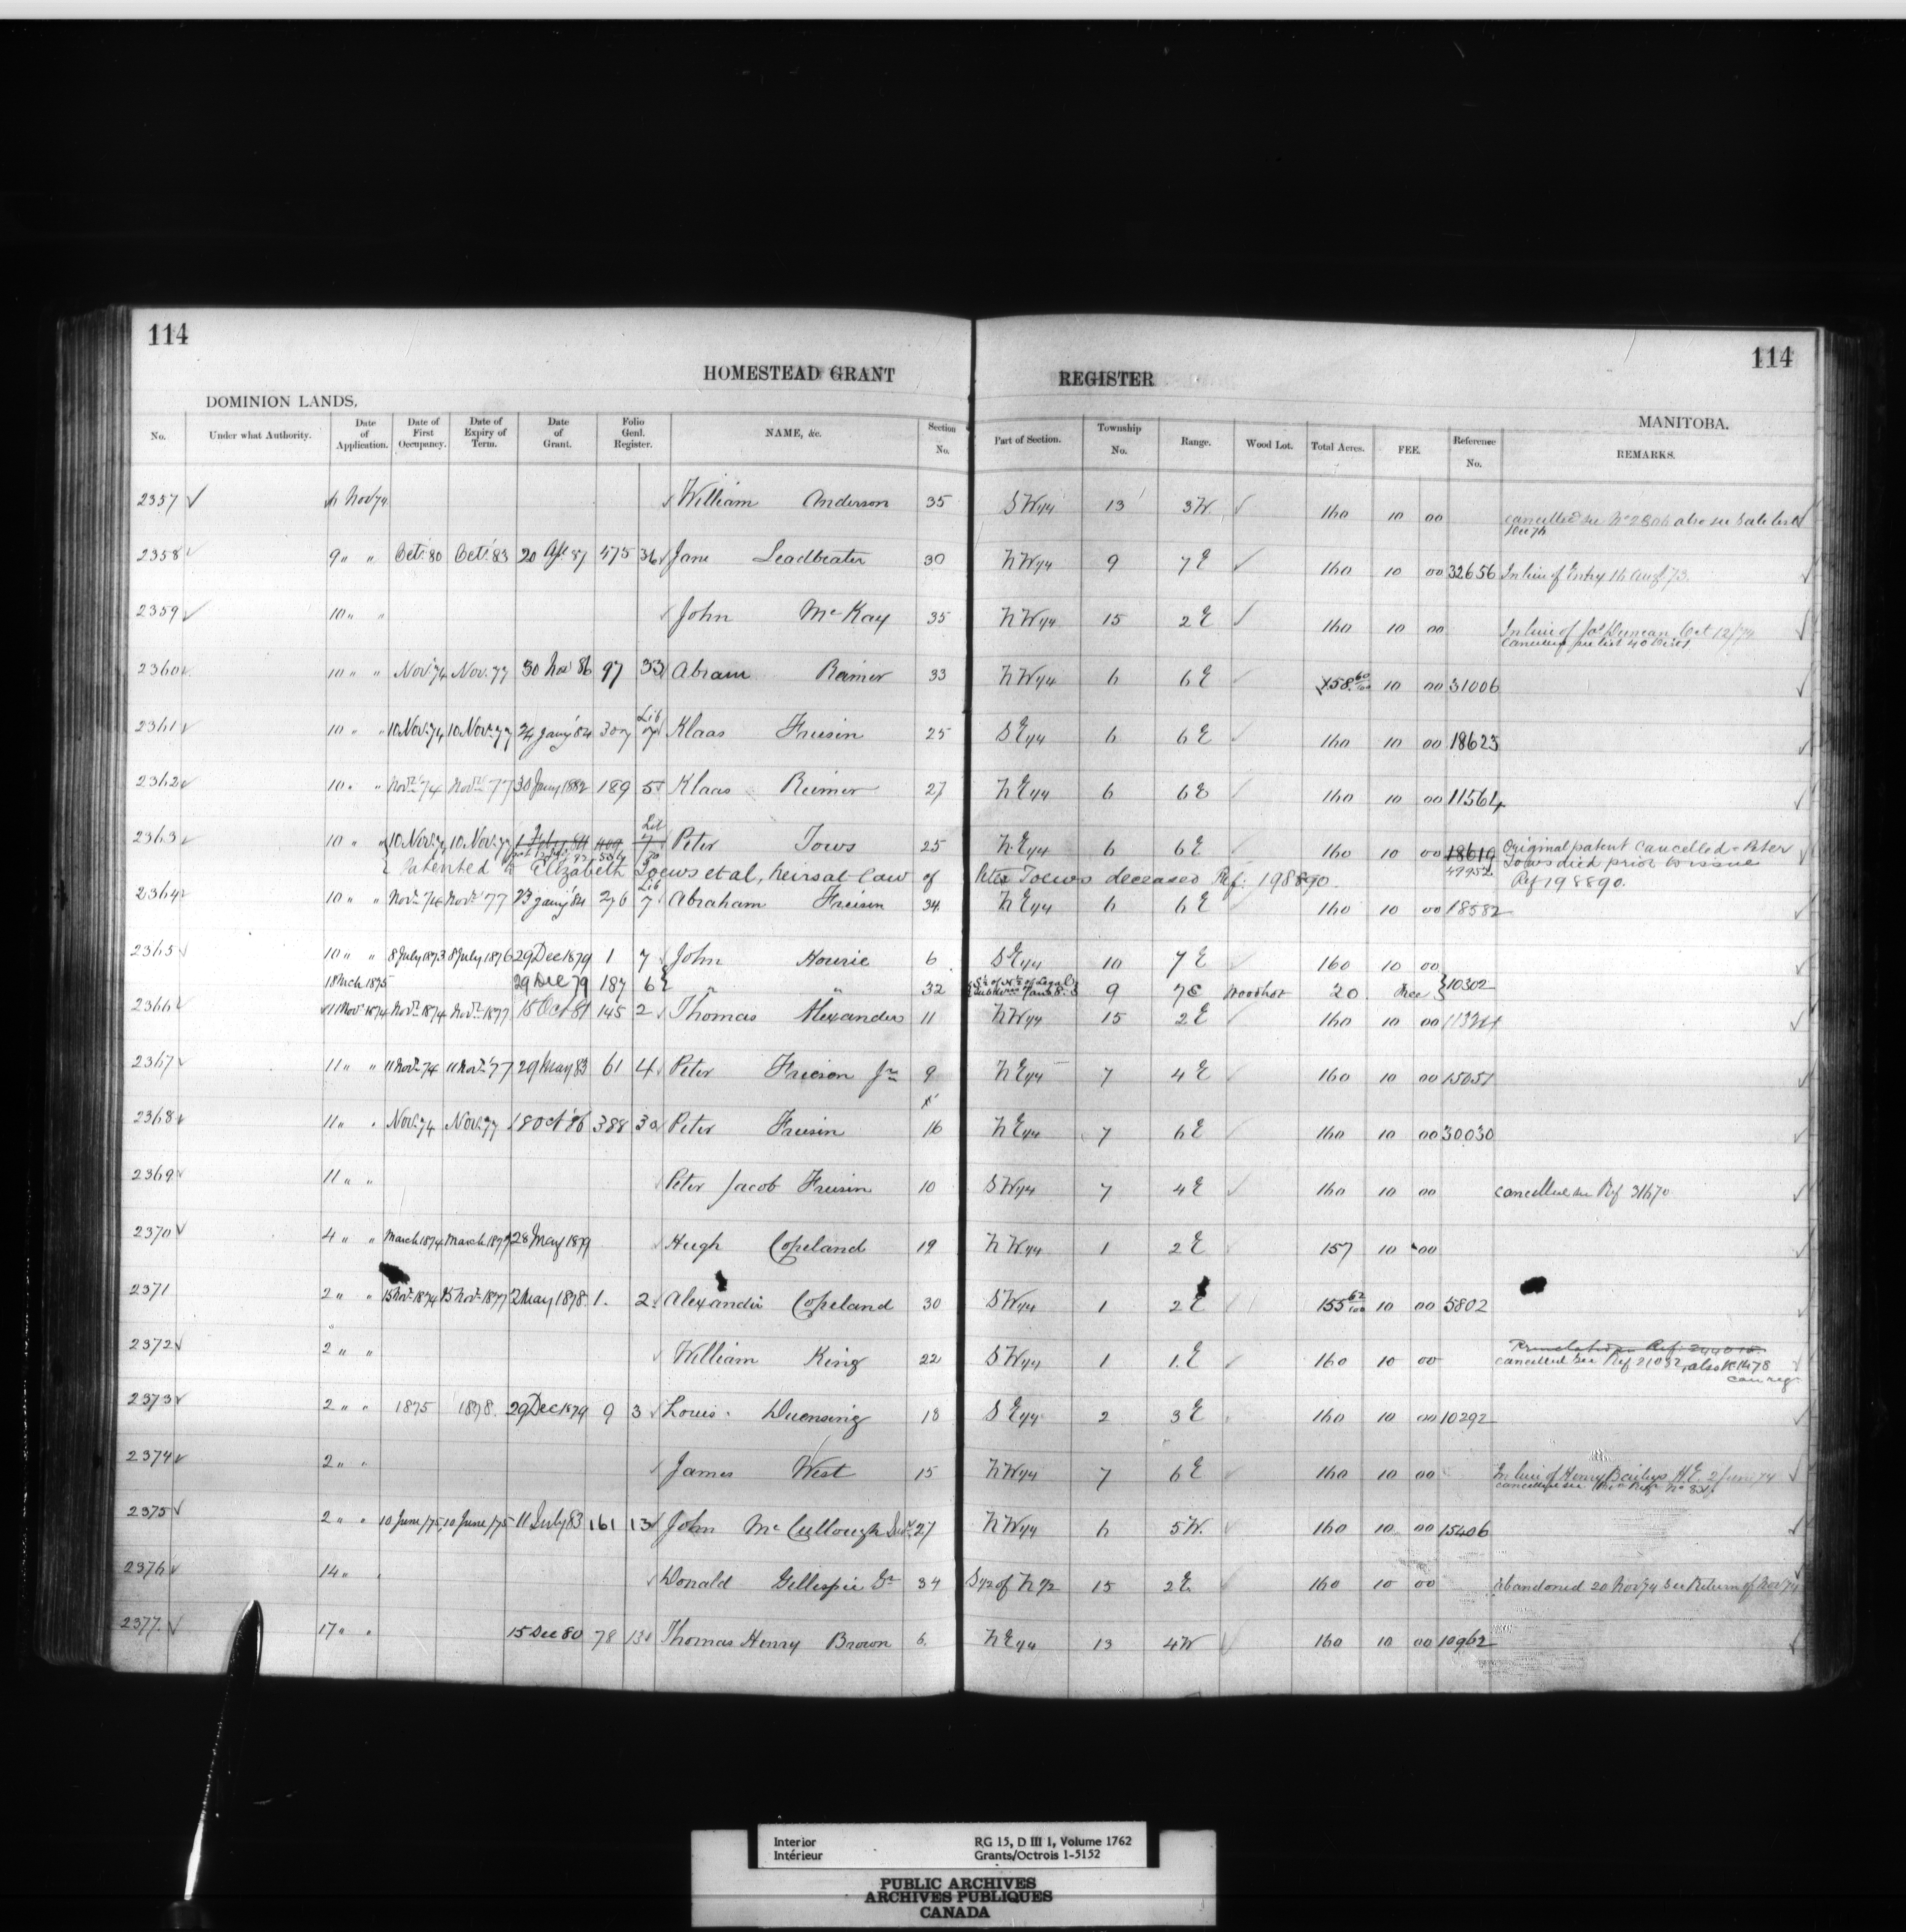 114
114
HOMESTEAD GRANT REGISTER
DOMINION LANDS,
MANITOBA.
No. Under what Authority. Date of Application. Date of First Occupancy. Date of Expiry of Term. Date of Grant. Folio Genl. Register. NAME, &c. Section No. Part of Section. Township No. Range. Wood Lot. Total Acres. FEE. Reference No. REMARKS.
2357 6 Nov 74 William Anderson 35 SW 1/4 13 3 W. 160 10 00 cancelled see No 2806 also see Sale
2358 9 " " Oct. 80 Oct. 83 20 Apl 87 475 36 Jane Leadbeater 30 NW 1/4 9 7 E 160 10 00 32656 In lieu of Entry 16 Aug 73.
2359 10 " " John McKay 35 NW 1/4 15 2 E 160 10 00 In lieu of Jas Duncan Oct 12/74
2360 10 " " Nov. 74 Nov. 77 30 Nov 86 97 33 Abram Reimer 33 NW 1/4 6 6 E 158 60/100 10 00 31006
2361 10 " " 10 Nov. 74 10 Nov. 77 24 Jany 84 307 Lib 7 Klaas Friesin 25 SE 1/4 6 6 E 160 10 00 18623
2362 10 " " Novr 74 Novr 77 30 Jany 1882 189 5 Klaas Reimer 27 NE 1/4 6 6 E 160 10 00 11564
2363 10 " " 10 Nov. 74 10 Nov. 77 1 Feby 84 409 Lib 7 Peter Tows 25 N.E 1/4 6 6 E 160 10 00 18619 Original patent Cancelled - Peter
49952 Toews died prior to issue
Patented to Elizabeth Toews et al, heirs at law of Peter Toews deceased Ref: 198890. Ref 198890.
2364 10 " " Novr 74 Novr 77 23 Jany 84 276 Lib 7 Abraham Friesin 34 NE 1/4 6 6 E 160 10 00 18582
2365 10 " " 8 July 1873 8 July 1876 29 Dec 1879 1 7 John Hourie 6 SE 1/4 10 7 E 160 10 00
18 Mch 1875 29 Dec 79 187 6 " " 32 9 7 E Woodlot 20 Free 10302
2366 11 Nov 1874 Novr 1874 Novr 1877 15 Oct 81 145 2 Thomas Alexander 11 NW 1/4 15 2 E 160 10 00
2367 11 " " 11 Novr 74 11 Novr 77 29 May 83 61 4 Peter Frieson Jnr 9 NE 1/4 7 4 E 160 10 00 15051
2368 11 " " Nov. 74 Nov. 77 18 Oct 86 388 30 Peter Friesin 16 NE 1/4 7 6 E 160 10 00 30030
2369 11 " " Peter Jacob Friesin 10 SW 1/4 7 4 E 160 10 00 cancelled see Ref 31670
2370 4 " " March 1874 March 1877 28 May 1879 Hugh Copeland 19 NW 1/4 1 2 E 157 10 00
2371 2 " " 15 Novr 1874 15 Novr 1877 2 May 1878 1. 2 Alexander Copeland 30 SW 1/4 1 2 E 155 62/100 10 00 5802
2372 2 " " William King 22 SW 1/4 1 1. E 160 10 00 cancelled see Ref 21032, also
can reg
2373 2 " " 1875 1878. 29 Dec 1879 9 3 Louis Duensing 18 SE 1/4 2 3 E 160 10 00 10292
2374 2 " " James West 15 NW 1/4 7 6 E 160 10 00 In lieu of Henry Baileys H.E. 2 June 74
2375 2 " " 10 June/75 10 June/75 11 July 83 161 13 John McCullough 27 NW 1/4 6 5 W. 160 10 00 15406
2376 14 " Donald Gillespie Sr 34 S 1/2 of N 1/2 15 2 E. 160 10 00 Abandoned 20 Nov 74 see Return of Nov 74
2377. 17 " " 15 Dec 80 78 13 Thomas Henry Brown 6. NE 1/4 13 4 W 160 10 00 10962
Interior
Intérieur
RG 15, D III 1, Volume 1762
Grants/Octrois 1-5152
PUBLIC ARCHIVES
ARCHIVES PUBLIQUES
CANADA